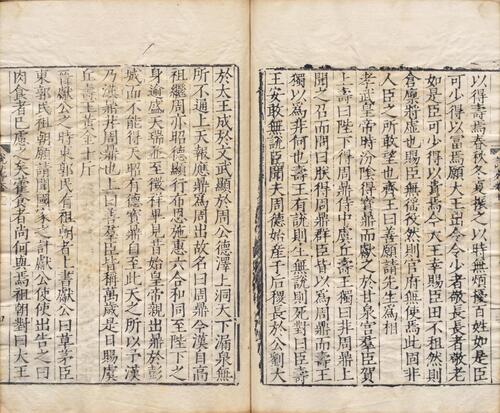 以得壽焉春秋冬夏振之以時無煩擾百姓如是臣
可少得以富焉願大王出令令少者敬長長者敬老
如是臣可少得以貴焉今大王幸賜臣田不租然則
倉廩將虛也賜臣無徭役然則官府無使焉此固非
人臣之所敢望也齊王曰善願請先生為相
孝武皇帝時汾陰得寳鼎而獻之於甘泉宮羣臣賀
上壽曰陛下得周鼎侍中虞丘壽王獨曰非周鼎上
聞之召而問曰朕得周鼎群臣皆以為周鼎而壽王
獨以為非何也壽王有說則生無說則死對曰臣壽
王安敢無說臣聞夫周德始產于后稷長於公劉大
於大王成於文武顯於周公德澤上洞天下漏泉無
所不通上天報應鼎為周出故名曰周鼎今漢自高
祖繼周亦昭德顯行布恩施惠六合和同至陛下之
身逾盛天瑞並至徵祥畢見昔始皇帝親出鼎於彭
城而不能得天昭有德寳鼎自至此天之所以予漢
乃漢鼎非周鼎也上曰善羣臣皆稱萬歲是日賜虞
丘壽王黃金十斤
晉獻公之時東郭民有祖朝者上書獻公曰草茅臣
東郭民祖朝願請聞國家之計獻公使使出告之曰
肉食者已慮之矣藿食者尚何與焉祖朝對曰大王